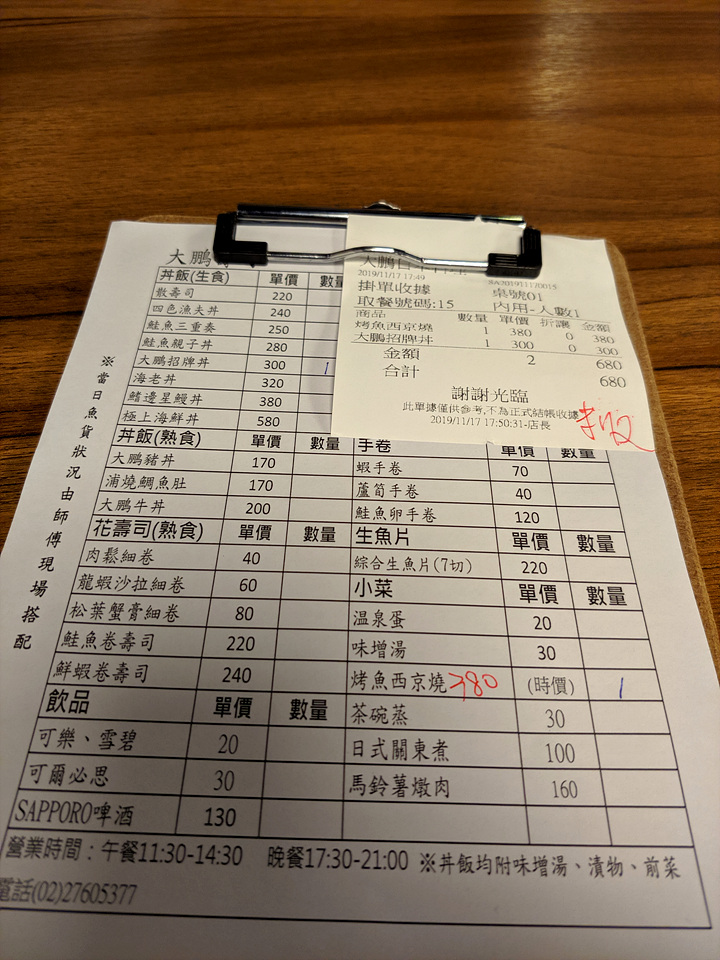 大鵬
丼飯(生食) 單價 數量
散壽司 220
四色漁夫丼 240
鮭魚三重奏 250
鮭魚親子丼 280
大鵬招牌丼 300 1
海老丼 320
鰭邊星鰻丼 380
極上海鮮丼 580
丼飯(熟食) 單價 數量
大鵬豬丼 170
浦燒鯛魚肚 170
大鵬牛丼 200
花壽司(熟食) 單價 數量
肉鬆細卷 40
龍蝦沙拉細卷 60
松葉蟹膏細卷 80
鮭魚卷壽司 220
鮮蝦卷壽司 240
飲品 單價 數量
可樂、雪碧 20
可爾必思 30
SAPPORO啤酒 130
※當日魚貨狀況由師傅現場搭配
2019/11/17 17:49
掛單收據 桌號01
取餐號碼:15 內用-人數1
商品 數量 單價 折讓 金額
烤魚西京燒 1 380 0 380
大鵬招牌丼 1 300 0 300
金額 2 680
合計 680
謝謝光臨
此單據僅供參考,不為正式結帳收據
2019/11/17 17:50:31-店長
手卷 單價 數量
蝦手卷 70
蘆筍手卷 40
鮭魚卵手卷 120
生魚片 單價 數量
綜合生魚片(7切) 220
小菜 單價 數量
溫泉蛋 20
味增湯 30
烤魚西京燒 380 (時價) 1
茶碗蒸 30
日式關東煮 100
馬鈴薯燉肉 160
營業時間：午餐11:30-14:30 晚餐17:30-21:00 ※丼飯均附味增湯、漬物、前菜
電話(02)27605377